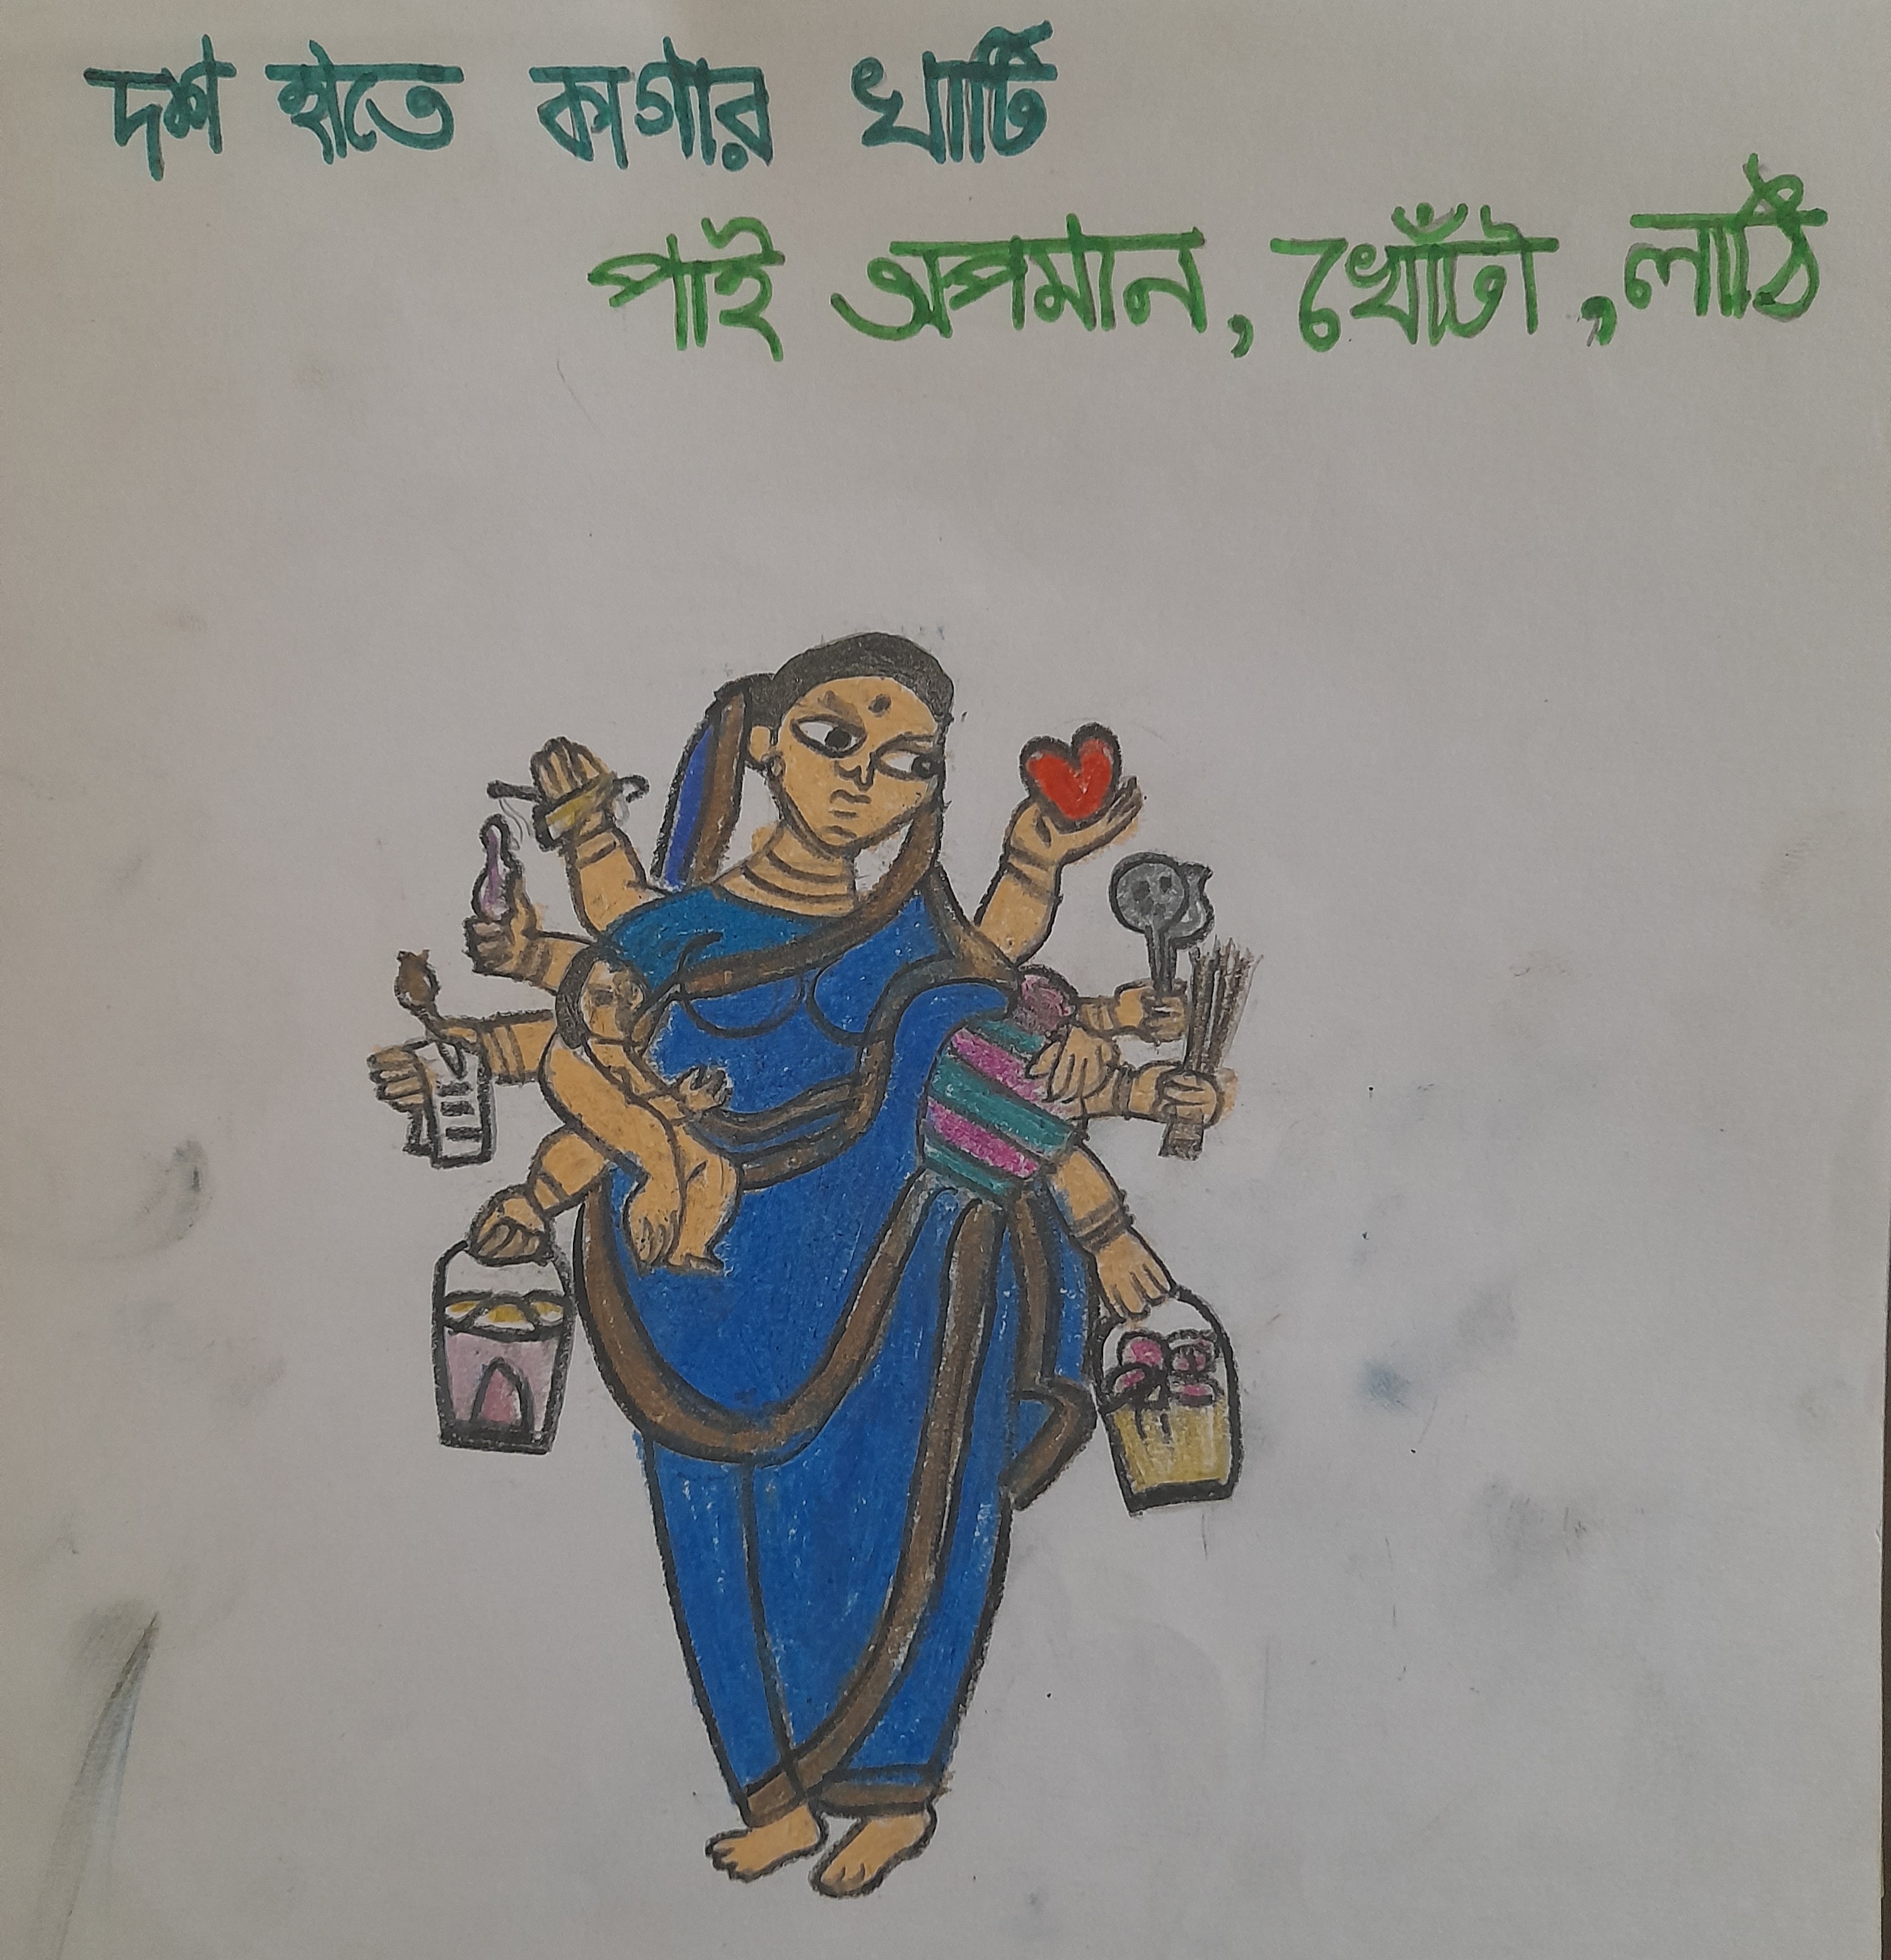 দশ হাতে কাগার খাটি
পাই অপমান, খোঁটা, লাঠি